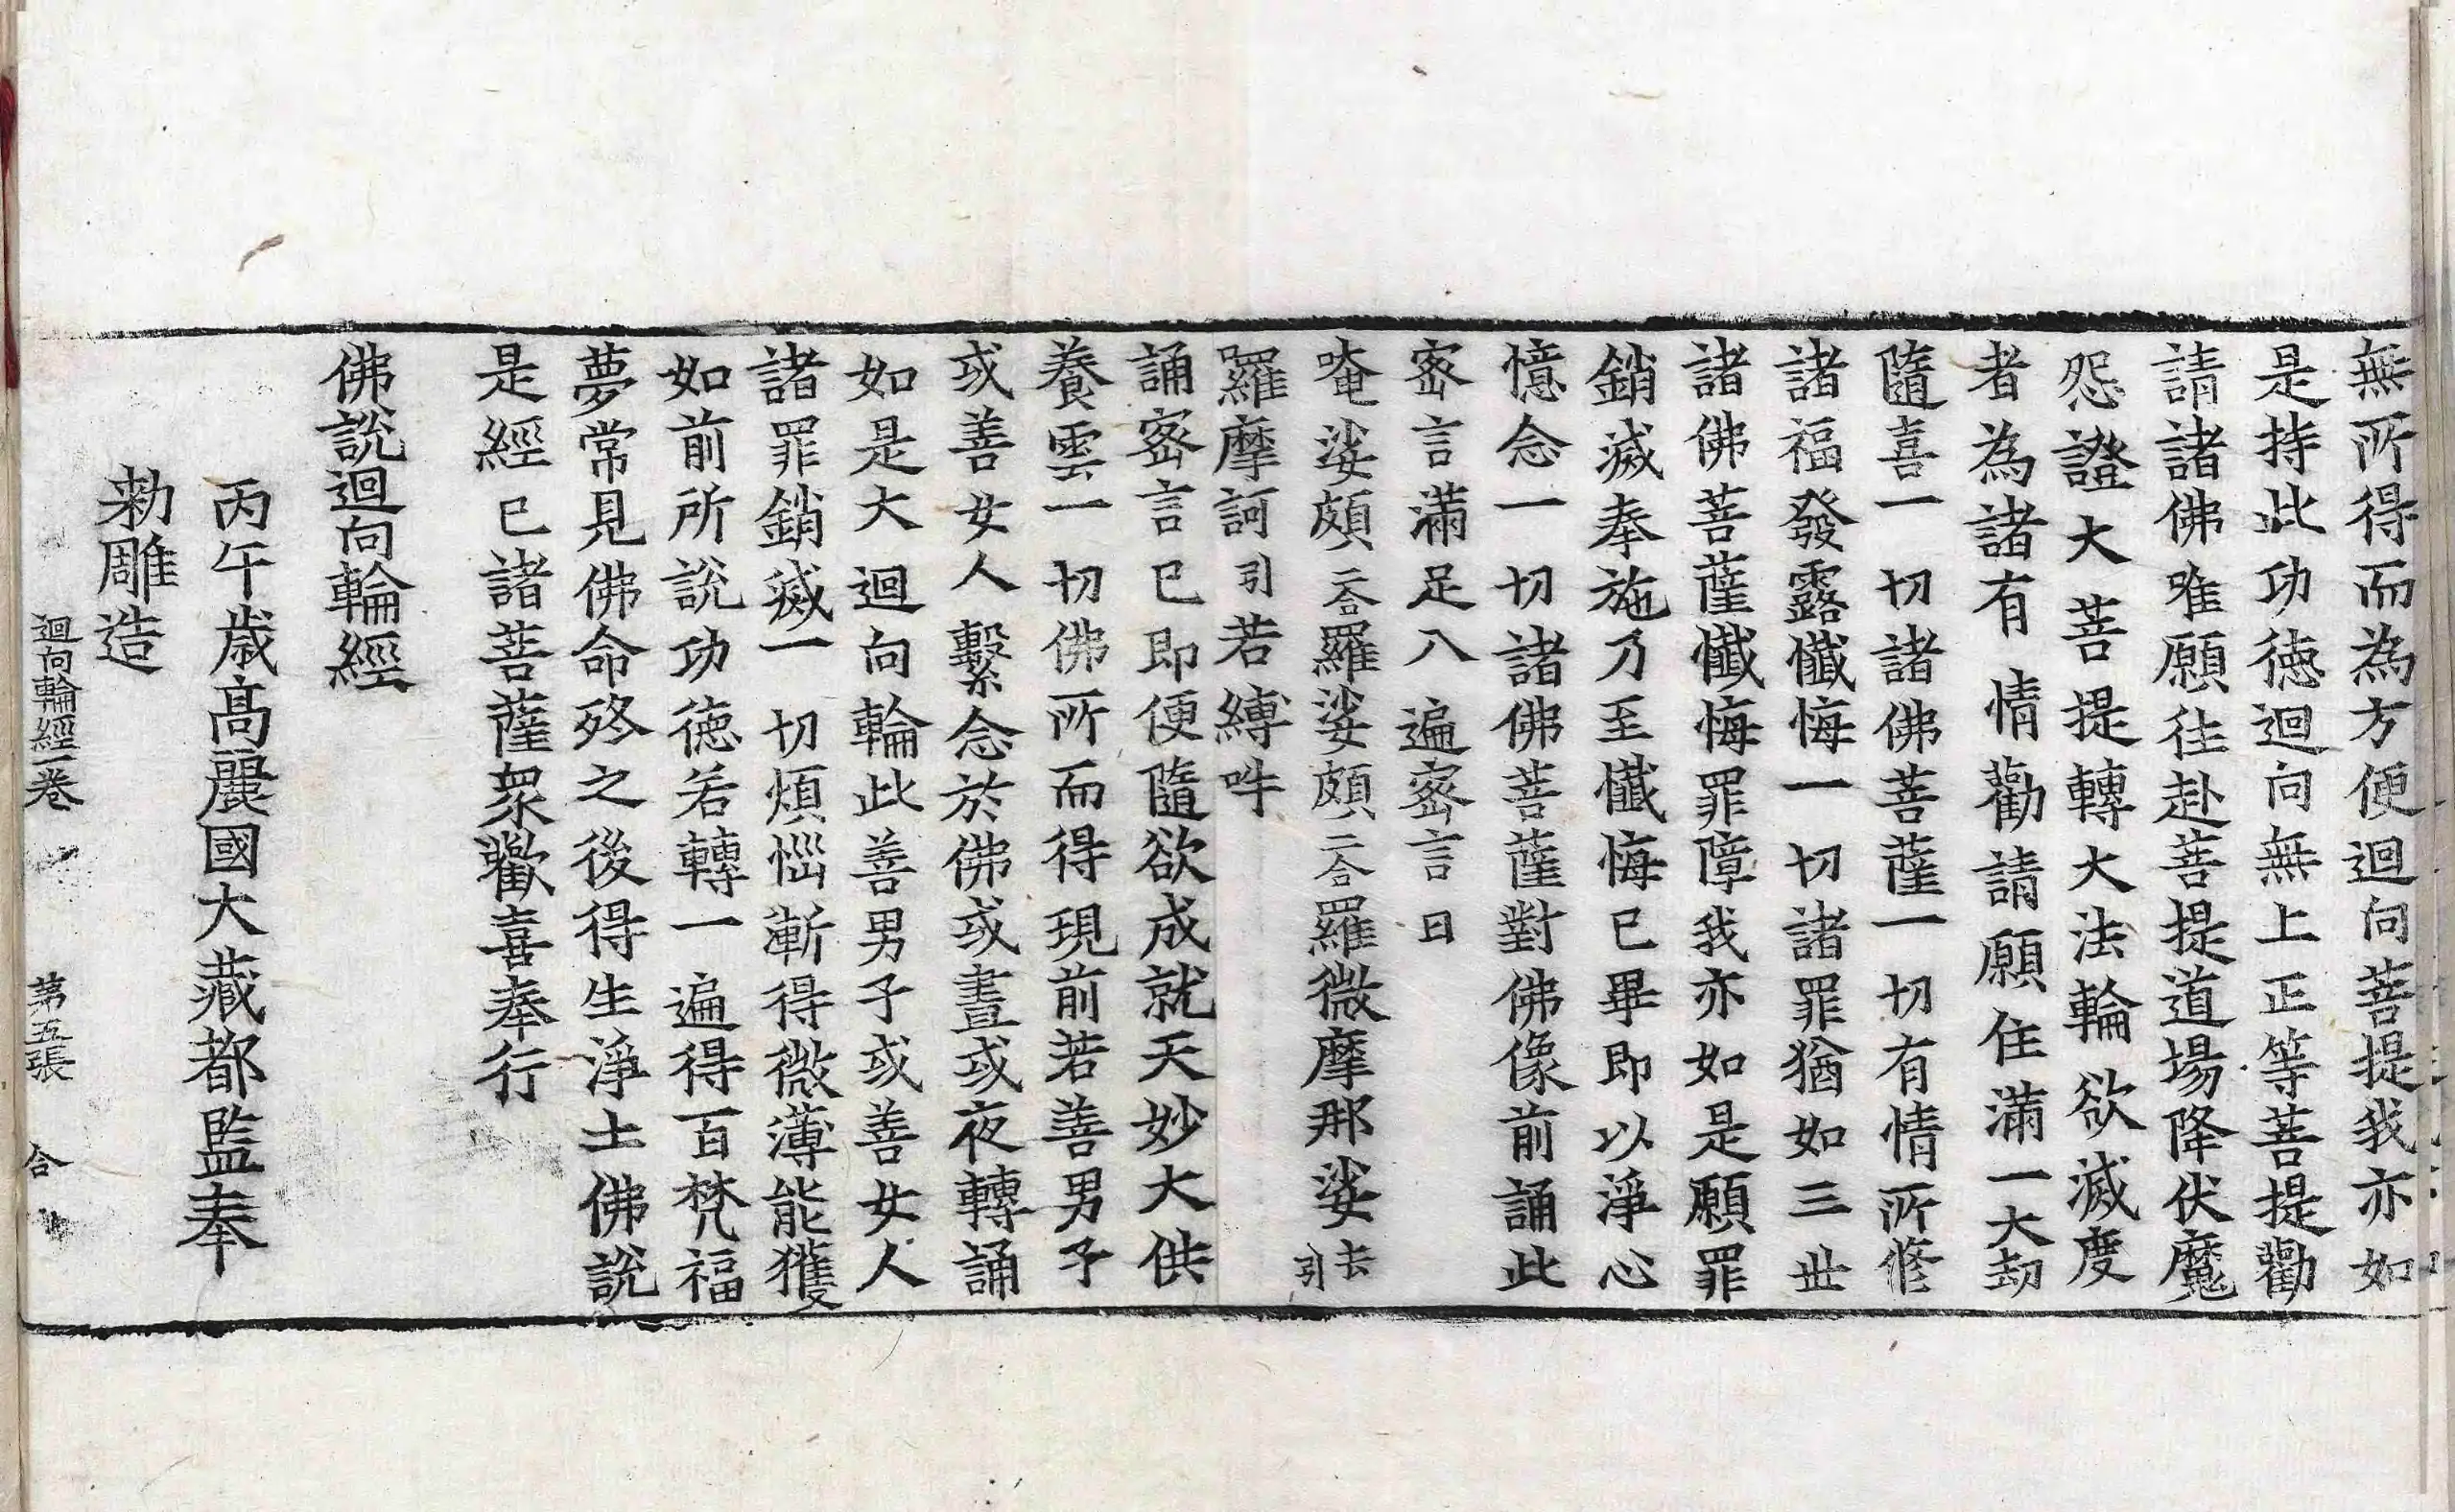 無所得而為方便迴向菩提我亦如
是持此功德迴向無上正等菩提勸
請諸佛唯願往赴菩提道場降伏魔
怨證大菩提轉大法輪欲滅度
者為諸有情勸請願住滿一大劫
隨喜一切諸佛菩薩一切有情所修
諸福發露懺悔一切諸罪猶如三世
諸佛菩薩懺悔罪障我亦如是願罪
銷滅奉施乃至懺悔已畢即以淨心
憶念一切諸佛菩薩對佛像前誦此
密言滿足八遍密言曰
唵娑頗二合羅娑頗二合羅微摩那娑去引
羅摩訶引若縛吽
誦密言已即便隨欲成就天妙大供
養雲一切佛所而得現前若善男子
或善女人繫念於佛或晝或夜轉誦
如是大迴向輪此善男子或善女人
諸罪銷滅一切煩惱漸得微薄能獲
如前所說功德若轉一遍得百梵福
夢常見佛命終之後得生淨土佛說
是經已諸菩薩眾歡喜奉行
佛說迴向輪經
丙午歲高麗國大藏都監奉
勅雕造
迴向輪經一卷 第五張 合